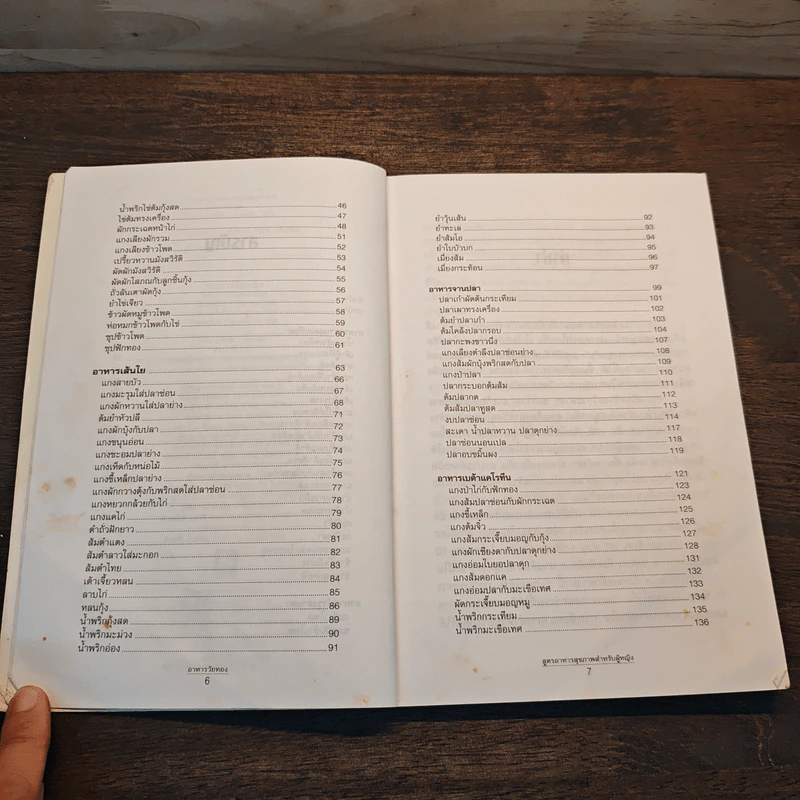 น้ำพริกไข่ต้มกุ้งสด 46
ไข่ต้มทรงเครื่อง 47
ผักกระเฉดหน้าไก่ 48
แกงเลียงผักรวม 51
แกงเลียงข้าวโพด 52
เปรี้ยวหวานมังสวิรัติ 53
ผัดผักมังสวิรัติ 54
ผัดผักโสภณกับลูกชิ้นกุ้ง 55
ถั่วลันเตาผัดกุ้ง 56
ยำไข่เจียว 57
ข้าวผัดหมูข้าวโพด 58
ห่อหมกข้าวโพดกับไข่ 59
ซุปข้าวโพด 60
ซุปฟักทอง 61
อาหารเส้นใย 63
แกงสายบัว 66
แกงมะรุมใส่ปลาช่อน 67
แกงผักหวานใส่ปลาย่าง 68
ต้มยำหัวปลี 71
แกงผักบุ้งกับปลา 72
แกงขนุนอ่อน 73
แกงชะอมปลาย่าง 74
แกงเห็ดกับหน่อไม้ 75
แกงขี้เหล็กปลาย่าง 76
แกงผักกวางตุ้งกับพริกสดใส่ปลาช่อน 77
แกงหยวกกล้วยกับไก่ 78
แกงแคไก่ 79
ตำถั่วฝักยาว 80
ส้มตำแตง 81
ส้มตำลาวใส่มะกอก 82
ส้มตำไทย 83
เต้าเจี้ยวหลน 84
ลาบไก่ 85
หลนกุ้ง 86
น้ำพริกกุ้งสด 89
น้ำพริกมะม่วง 90
น้ำพริกอ่อง 91
อาหารวัยทอง
6
ยำวุ้นเส้น 92
ยำทะเล 93
ยำส้มโอ 94
ยำใบบัวบก 95
เมี่ยงส้ม 96
เมี่ยงกระท้อน 97
อาหารจานปลา 99
ปลาเก๋าผัดต้นกระเทียม 101
ปลาเผาทรงเครื่อง 102
ต้มยำปลาเก๋า 103
ต้มโคล้งปลากรอบ 104
ปลากะพงขาวนึ่ง 107
แกงเลียงตำลึงปลาช่อนย่าง 108
แกงส้มผักบุ้งพริกสดกับปลา 109
แกงป่าปลา 110
ปลากระบอกต้มส้ม 111
ต้มปลากด 112
ต้มส้มปลาทูสด 113
งบปลาช่อน 114
สะเดา น้ำปลาหวาน ปลาดุกย่าง 117
ปลาช่อนนอนเปล 118
ปลาอบขมิ้นผง 119
อาหารเบต้าแคโรทีน 121
แกงป่าไก่กับฟักทอง 123
แกงส้มปลาช่อนกับผักกระเฉด 124
แกงขี้เหล็ก 125
แกงต้มจิ๋ว 126
แกงส้มกระเจี๊ยบมอญกับกุ้ง 127
แกงผักเชียงดากับปลาดุกย่าง 128
แกงอ่อมใบยอปลาดุก 131
แกงส้มดอกแค 132
แกงอ่อมปลากับมะเขือเทศ 133
ผัดกระเจี๊ยบมอญหมู 134
น้ำพริกกระเทียม 135
น้ำพริกมะเขือเทศ 136
สูตรอาหารสุขภาพสำหรับผู้หญิง
7